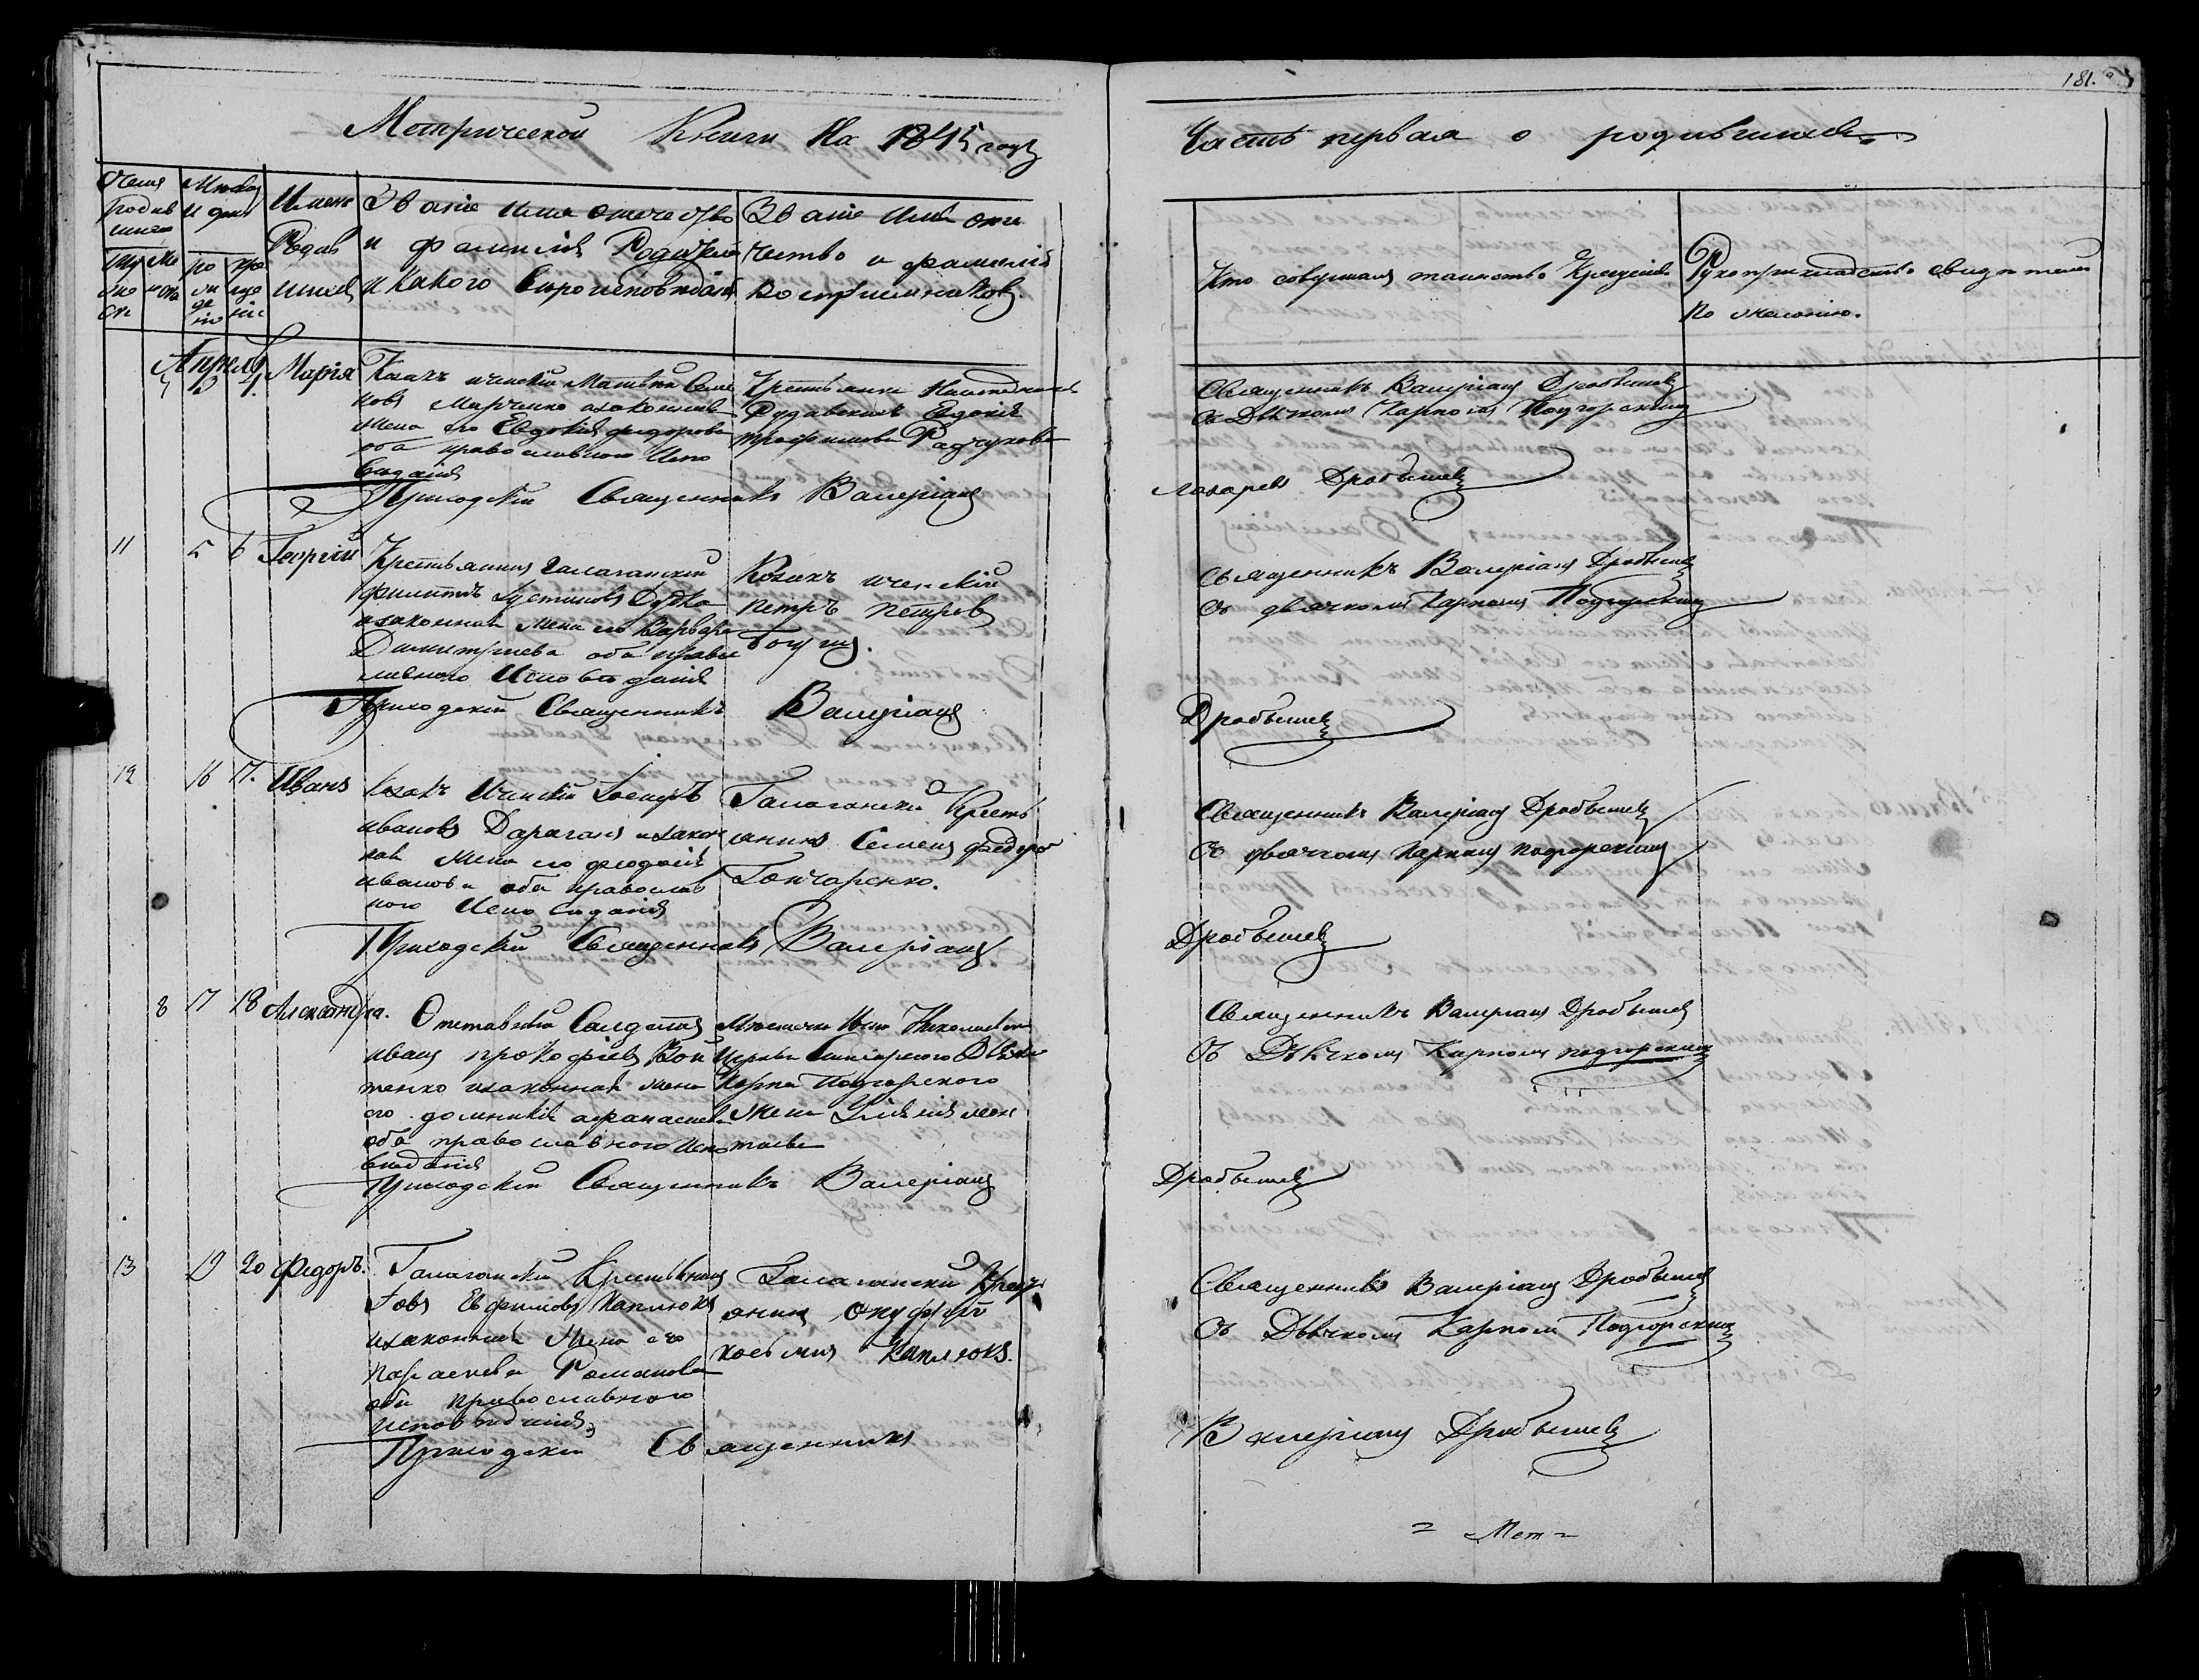 181.
Метрической Книги На 1845 годъ
Часть первая о родившихся
Имена Родив шихся
Званіе имя отечество и фамилія Родителей и Какого Вероисповѣданія
Званіе Имя оте чество и фамилія Воспріемниковъ
Кто совершалъ таинство Крещенія
Рукоприкладство свидѣтелей по желанію.
Апрель
2 4. Марія
Козакъ иченскій Матвѣй
Марченко изаконная
жена его Евдокія федорова
оба православного Испо
веданія
Евдокія
трофимова
Священникъ Валеріанъ Дробышевъ
Съ Дьячкомъ Карпомъ Подгорскимъ
Приходскій Священникъ Валеріанъ
Лазаревъ Дробышевъ
11 5 6 Георгій
Крестьянинъ Галаганскій
филиппъ Іустиновъ Дудка
изаконная жена его Варвара
Димитриева оба право
славного Исповѣданія
Козакъ иченскій
петръ петровъ
Священникъ Валеріанъ Дробышевъ
Съ дьячкомъ Карпомъ Подгорскимъ
Приходскій Священникъ Валеріанъ
Дробышевъ
12 16 17. Иванъ
Козакъ Иченскій Іосифъ
ивановъ Дараганъ изакон
ная жена его феодосія
иванова оба православ
ного Исповѣданія
Галаганскій Кресть
янинъ Семенъ федоровъ
Гончаренко.
Священникъ Валеріанъ Дробышевъ
Съ дьячкомъ Карпомъ подгорскимъ
Приходскій Священникъ Валеріанъ
Дробышевъ
8 17 18 Александра.
Отставный Салдатъ
иванъ прокофіевъ Вой
тенко изаконная жена
его домникія афанасиева
оба православного испо
веданія
Местечка Ични Николаевской
Церкви Дьячка
Карпа Подгорского
жена
Священникъ Валеріанъ Дробышевъ
Съ Дьячкомъ Карпомъ подгорскимъ
Приходскій Священникъ Валеріанъ
Дробышевъ
13 19 20 Федоръ.
Галаганскій Крестьянинъ
Іовъ Евфимовъ Каплюкъ
изаконная жена его
параскева Романова
оба православного
исповѣданія
Галаганскій Крест
янинъ Онуфрій
косьминъ Каплюкъ.
Священникъ Валеріанъ Дробышевъ
Съ Дьячкомъ Карпомъ Подгорскимъ
Приходскій Священникъ
Валеріанъ Дробышевъ
= Мет =